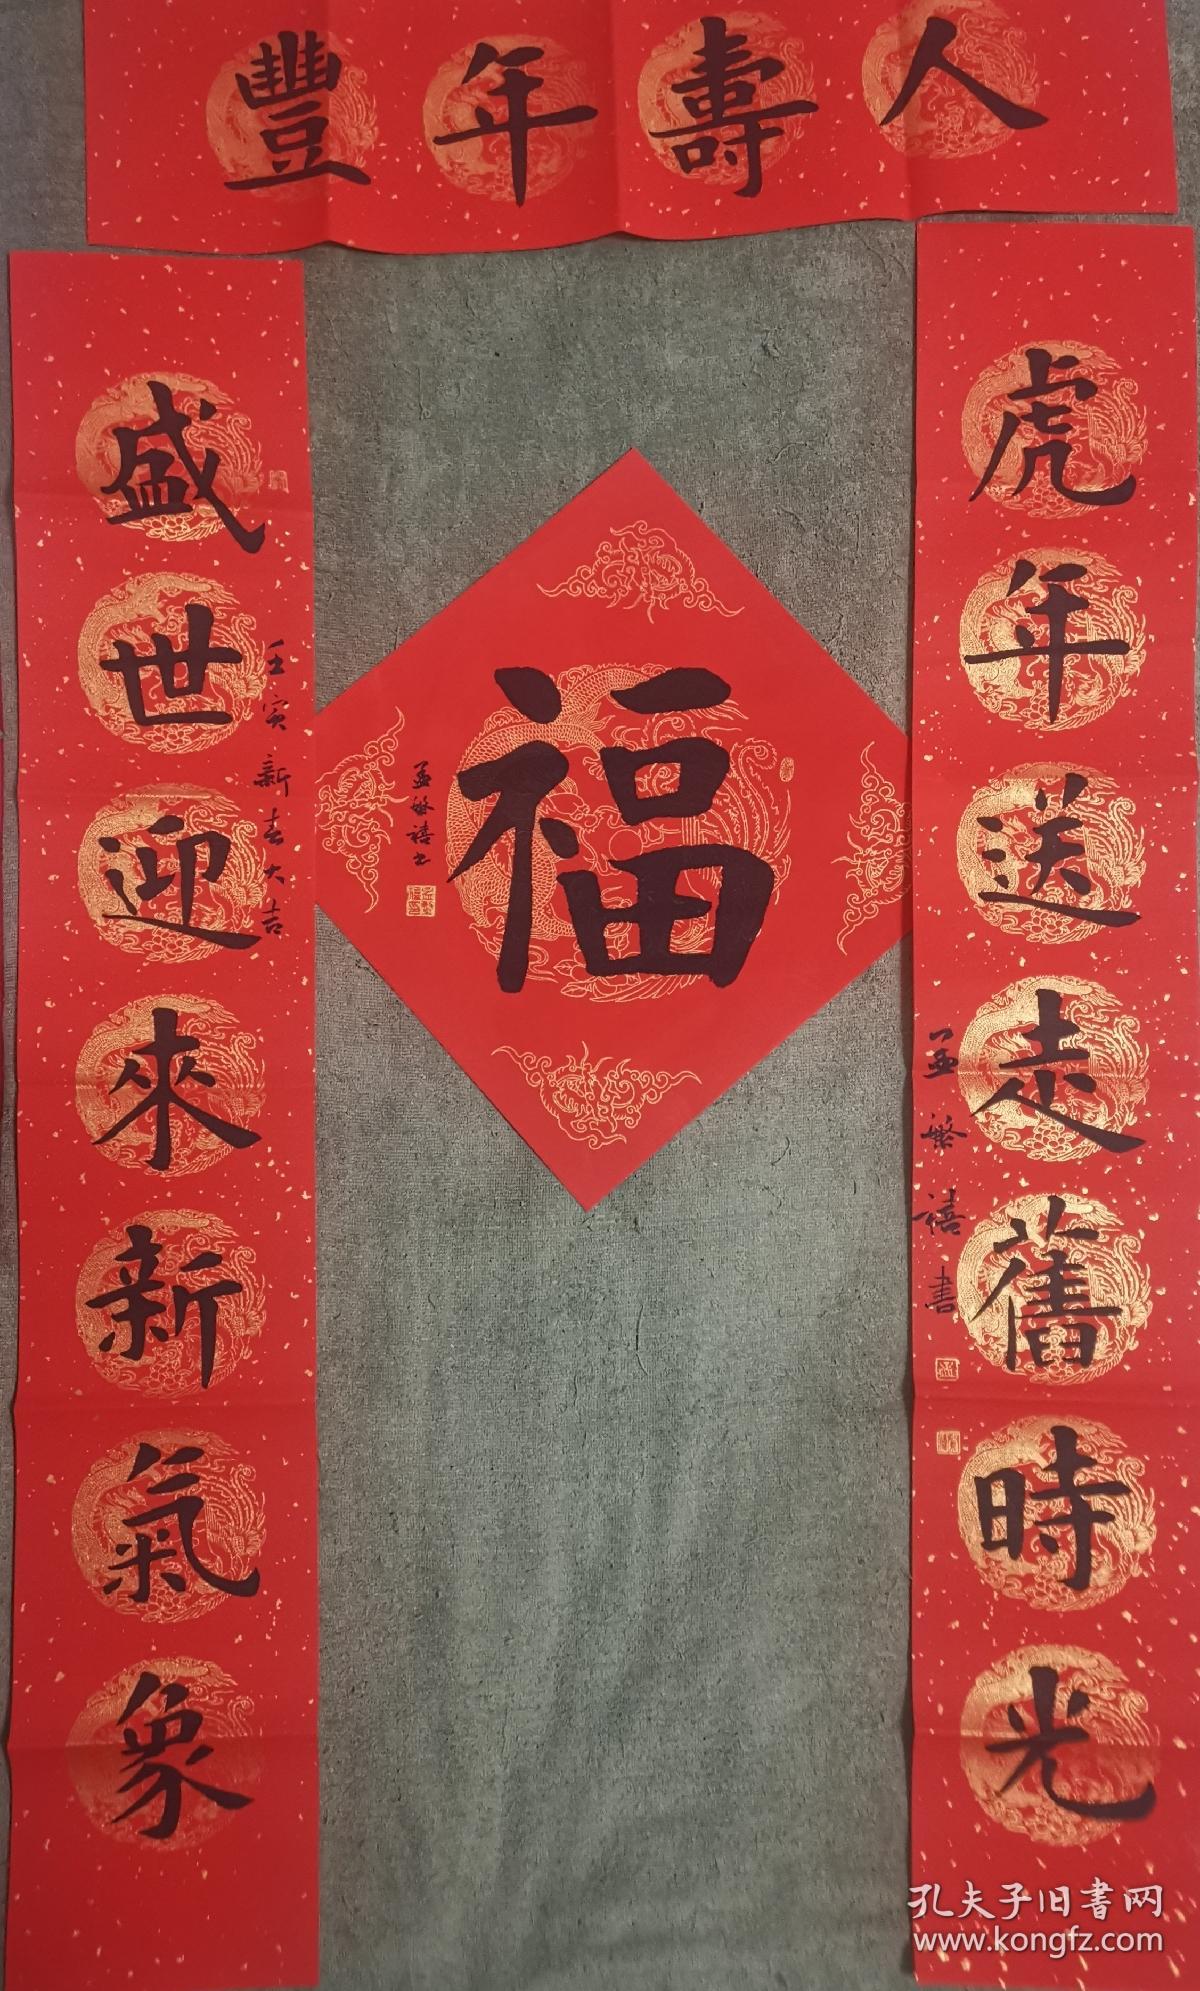 人壽年豐
虎年送走舊時光
孟繁禧書
福
孟繁禧书
盛世迎來新氣象
壬寅新春大吉
孔夫子旧书网
www.kongfz.com